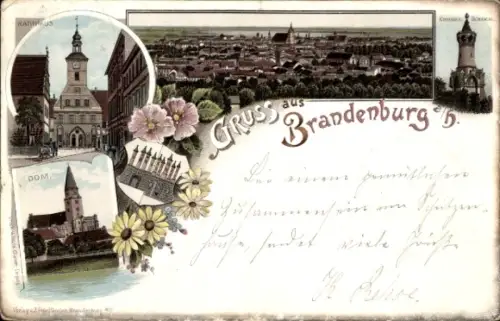 RATHHAUS
GRUSS aus Brandenburg a/H.
DOM.
Bei einem gemütlichen
Zusammensein im Schützen-
hause, sendet viele Grüße